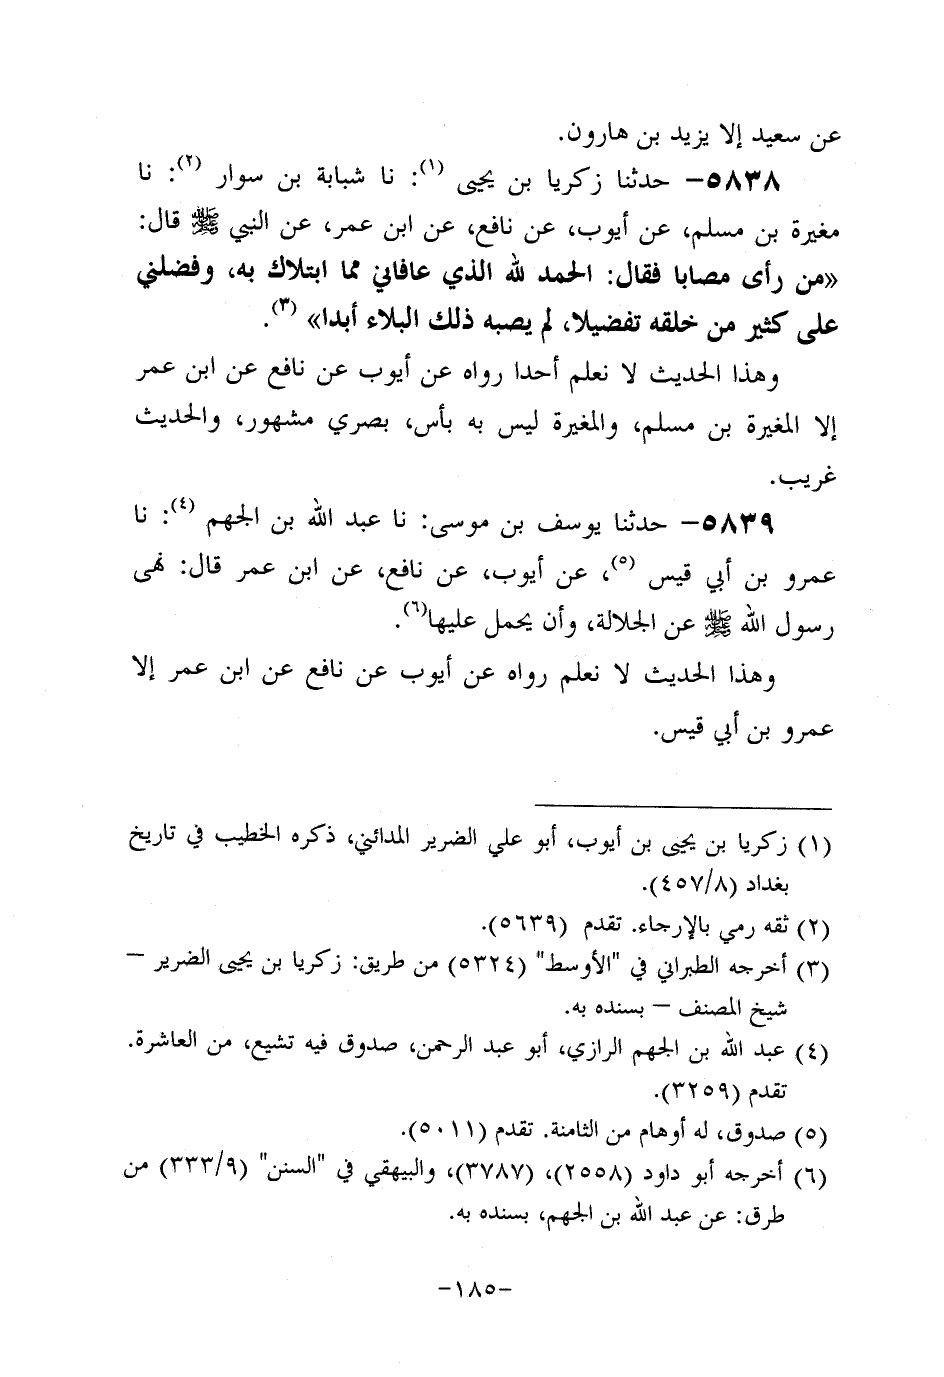 عن سعيد إلا يزيد بن هارون.
٥٨٣٨– حدثنا زكريا بن يحيى (١): نا شبابة بن سوار (٢): نا
مغيرة بن مسلم، عن أيوب، عن نافع، عن ابن عمر، عن النبي ﷺ قال:
«من رأى مصابا فقال: الحمد لله الذي عافاني مما ابتلاك به، وفضلني
على كثير من خلقه تفضيلا، لم يصبه ذلك البلاء أبدا» (٣).
وهذا الحديث لا نعلم أحدا رواه عن أيوب عن نافع عن ابن عمر
إلا المغيرة بن مسلم، والمغيرة ليس به بأس، بصري مشهور، والحديث
غريب.
٥٨٣٩– حدثنا يوسف بن موسى: نا عبد الله بن الجهم (٤): نا
عمرو بن أبي قيس (٥)، عن أيوب، عن نافع، عن ابن عمر قال: نهى
رسول الله ﷺ عن الجلالة، وأن يحمل عليها(٦).
وهذا الحديث لا نعلم رواه عن أيوب عن نافع عن ابن عمر إلا
عمرو بن أبي قيس.
(١) زكريا بن يحيى بن أيوب، أبو علي الضرير المدائني، ذكره الخطيب في تاريخ
بغداد (٤٥٧/٨).
(٢) ثقه رمي بالإرجاء. تقدم (٥٦٣٩).
(٣) أخرجه الطبراني في "الأوسط" (٥٣٢٤) من طريق: زكريا بن يحيى الضرير –
شيخ المصنف – بسنده به.
(٤) عبد الله بن الجهم الرازي، أبو عبد الرحمن، صدوق فيه تشيع، من العاشرة.
تقدم (٣٢٥٩).
(٥) صدوق، له أوهام من الثامنة. تقدم (٥٠١١).
(٦) أخرجه أبو داود (٢٥٥٨)، (٣٧٨٧)، والبيهقي في "السنن" (٣٣٣/٩) من
طرق: عن عبد الله بن الجهم، بسنده به.
-١٨٥-